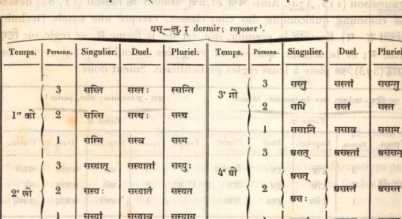 षस्—लु, र् dormir; reposer¹.
Temps. Personn. Singulier. Duel. Pluriel. Temps. Personn. Singulier. Duel. Pluriel
3 सस्ति सस्तः ससन्ति 3ᵉ गो 3 सस्तु सस्तां ससन्तु
1ʳᵉ की 2 सस्सि सस्थः सस्थ 2 सधि सस्तं सस्त
1 सस्मि सस्वः सस्मः 1 ससानि ससाव ससाम
3 सस्यात् सस्यातां सस्युः 3 असत् असस्तां अससन्
2ᵉ खी 2 सस्याः सस्यातं सस्यात 4ᵉ घी 2 असत् असः असस्तं असस्त
1 सस्यां सस्याव सस्याम